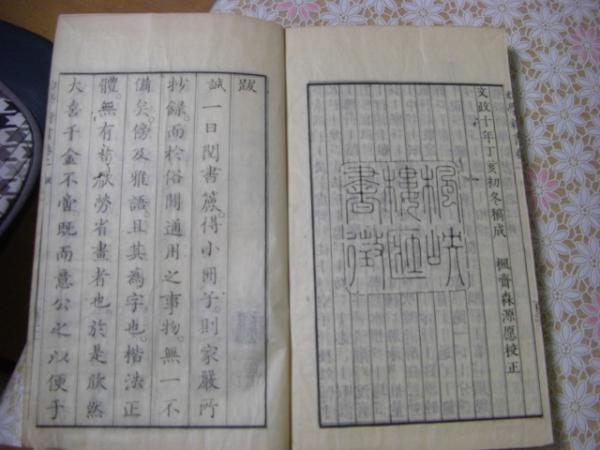 文政十年丁亥初冬稿成　楓齋森源愿校正
跋
誠一日閲書簏。得小冊子。則家嚴所
抄録。而於俗間通用之事物。無一不
備矣。傍及雅語。且其為字也。楷法正
體。無有勞省畫者也於是欣然
大喜千金不啻既而意公之以便于